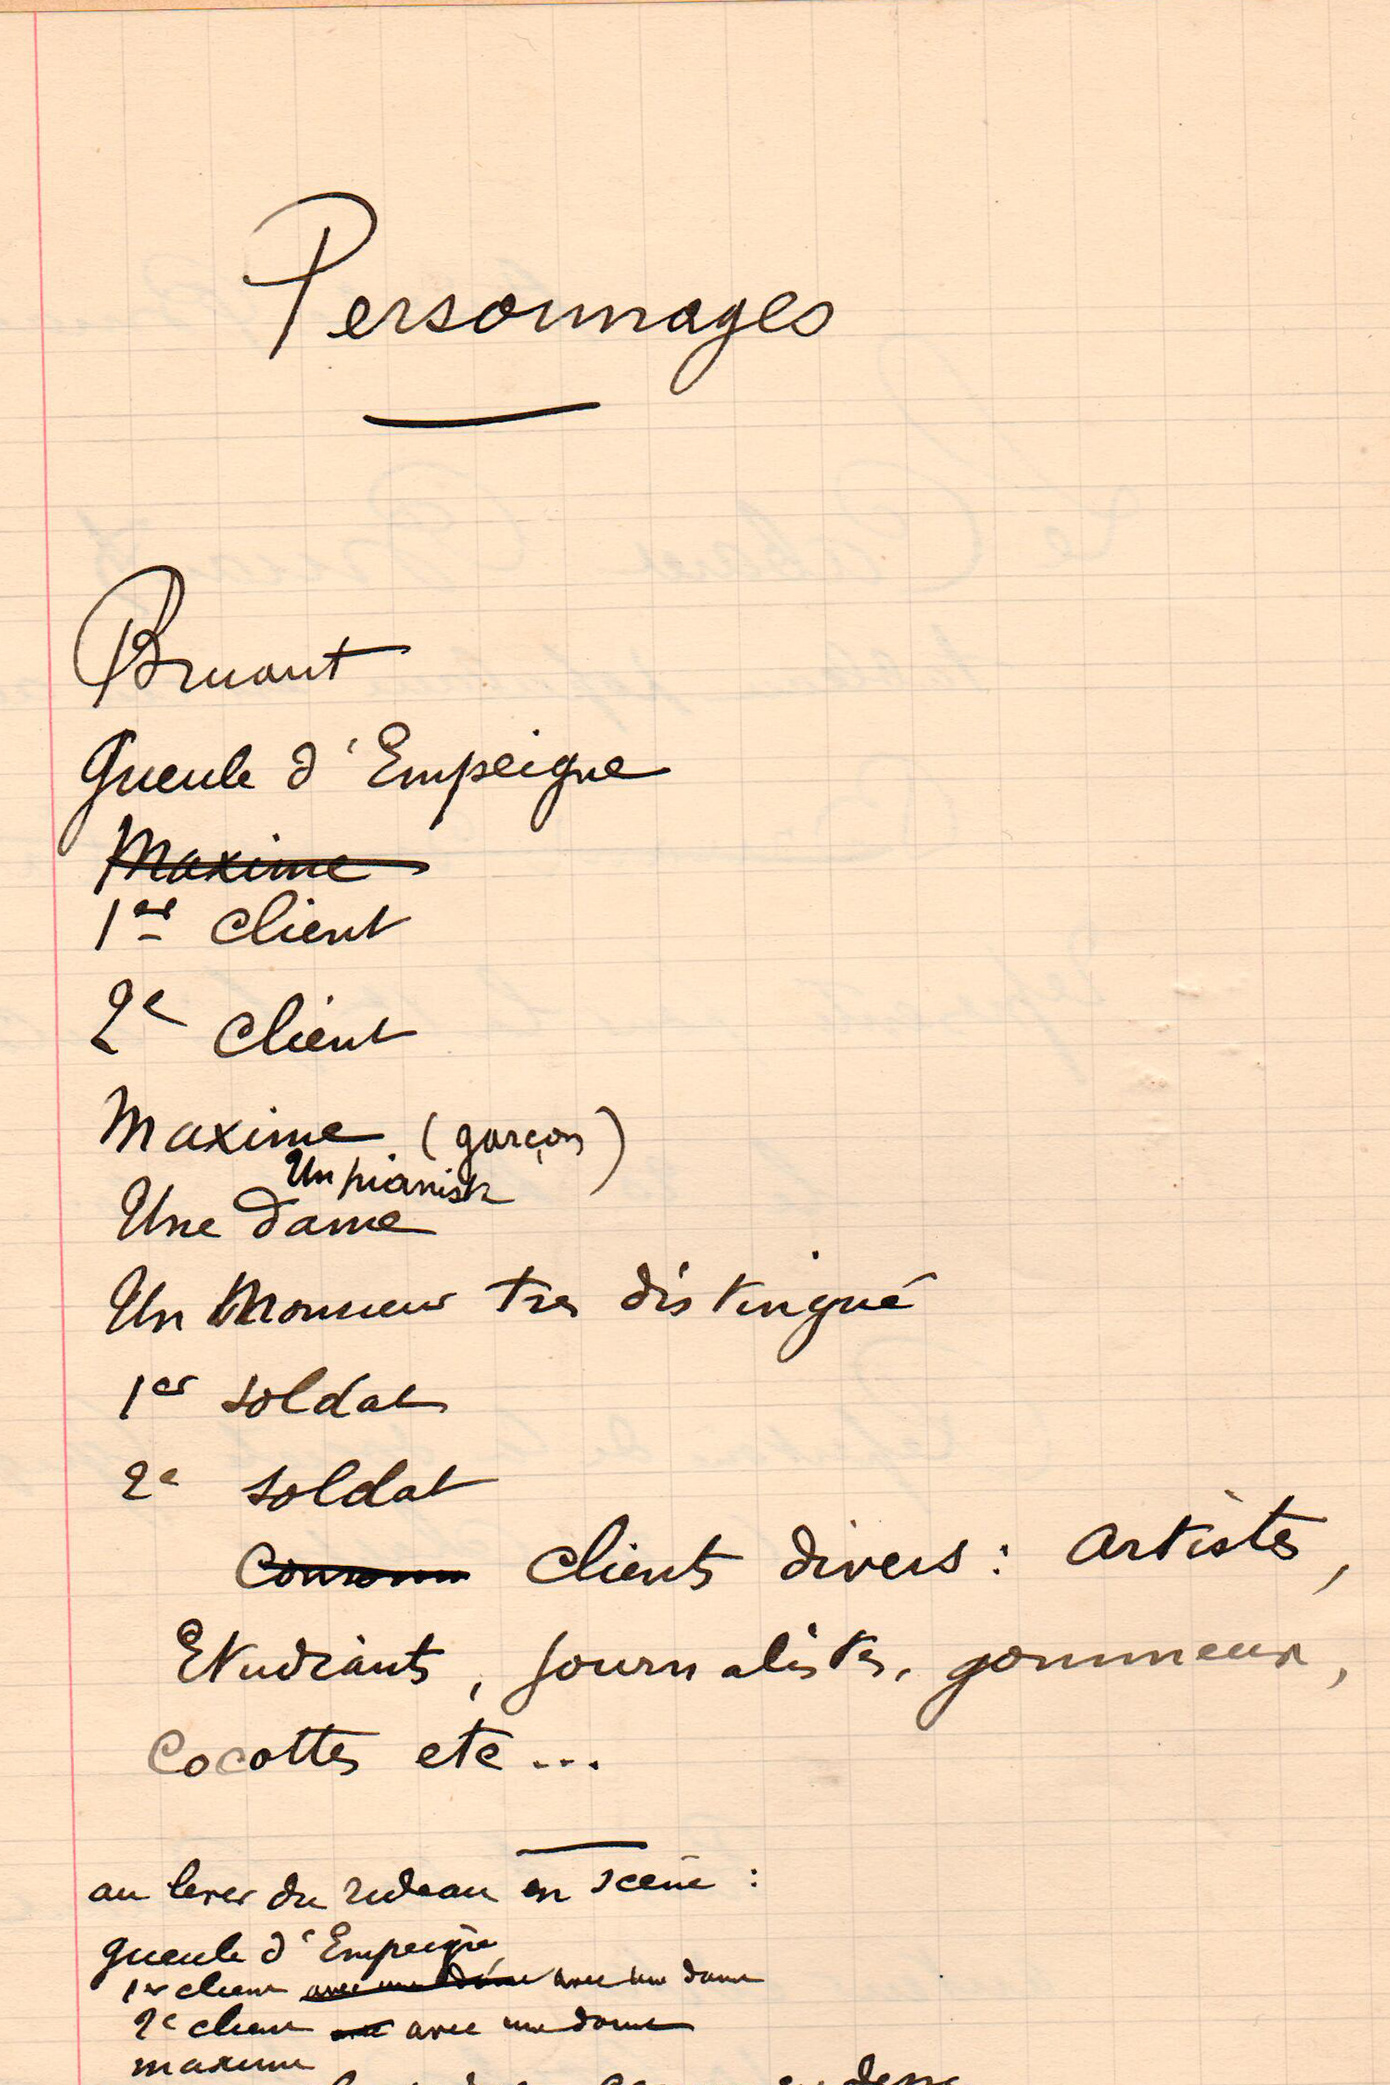 Personnages
Bruant
Gueule d'Empeigne
Maxime
1er client
2e client
Maxime (garçon)
Un pianiste
Une dame
Un Monsieur tres distingué
1er soldat
2e soldat
Clients divers : artistes,
Etudiants, journalistes, gommeux,
Cocottes etc...
au lever du rideau en scène :
gueule d'Empeigne
1er client avec une dame avec une dame
2e client avec une dame
maxime